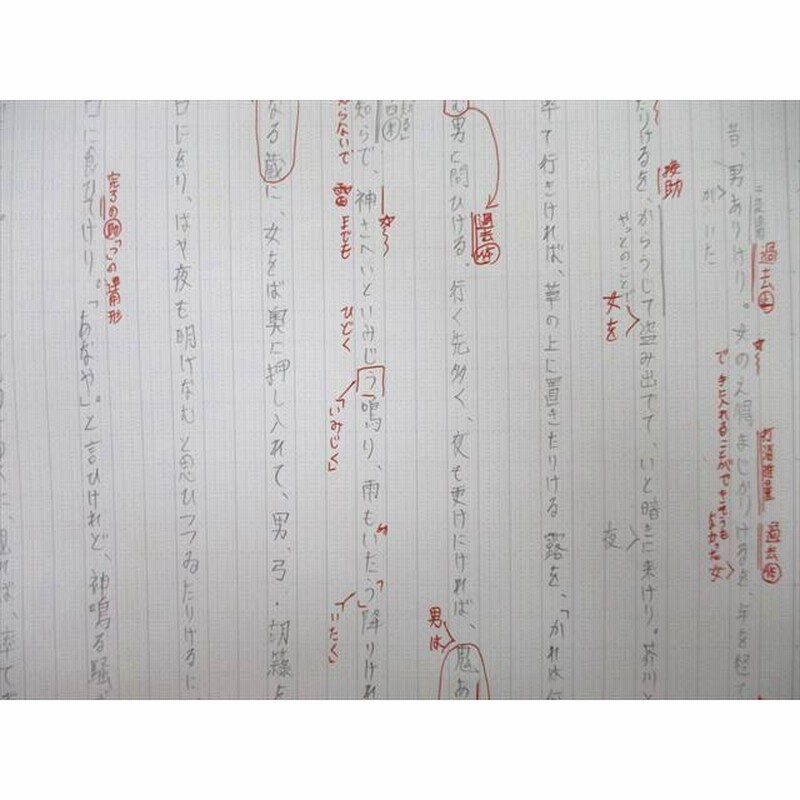 昔、男ありけり。女のえ得まじかりけるを、年を経て
過去
が いた
打消推量
過去
手に入れることができそうも
なかった女
たりけるを、からうじて盗み出でて、いと暗きに来けり。芥川と
接助
やっとのことで
女を
夜
率て行きければ、草の上に置きたりける露を、「かれは何
む男に問ひける。行く先多く、夜も更けにければ、鬼あ
過去
男は
知らで、神さへいといみじう鳴り、雨もいたう降りけれ
らないで
雷までも
ひどく
「いみじく」
「いたく」
なる蔵に、女をば奥に押し入れて、男、弓・胡籙を
口にをり、はや夜も明けなむと思ひつつゐたりけるに、
口に食ひてけり。「あなや。」と言ひけれど、神鳴る騒ぎ
完了の助「つ」の連用形
見れば、率て